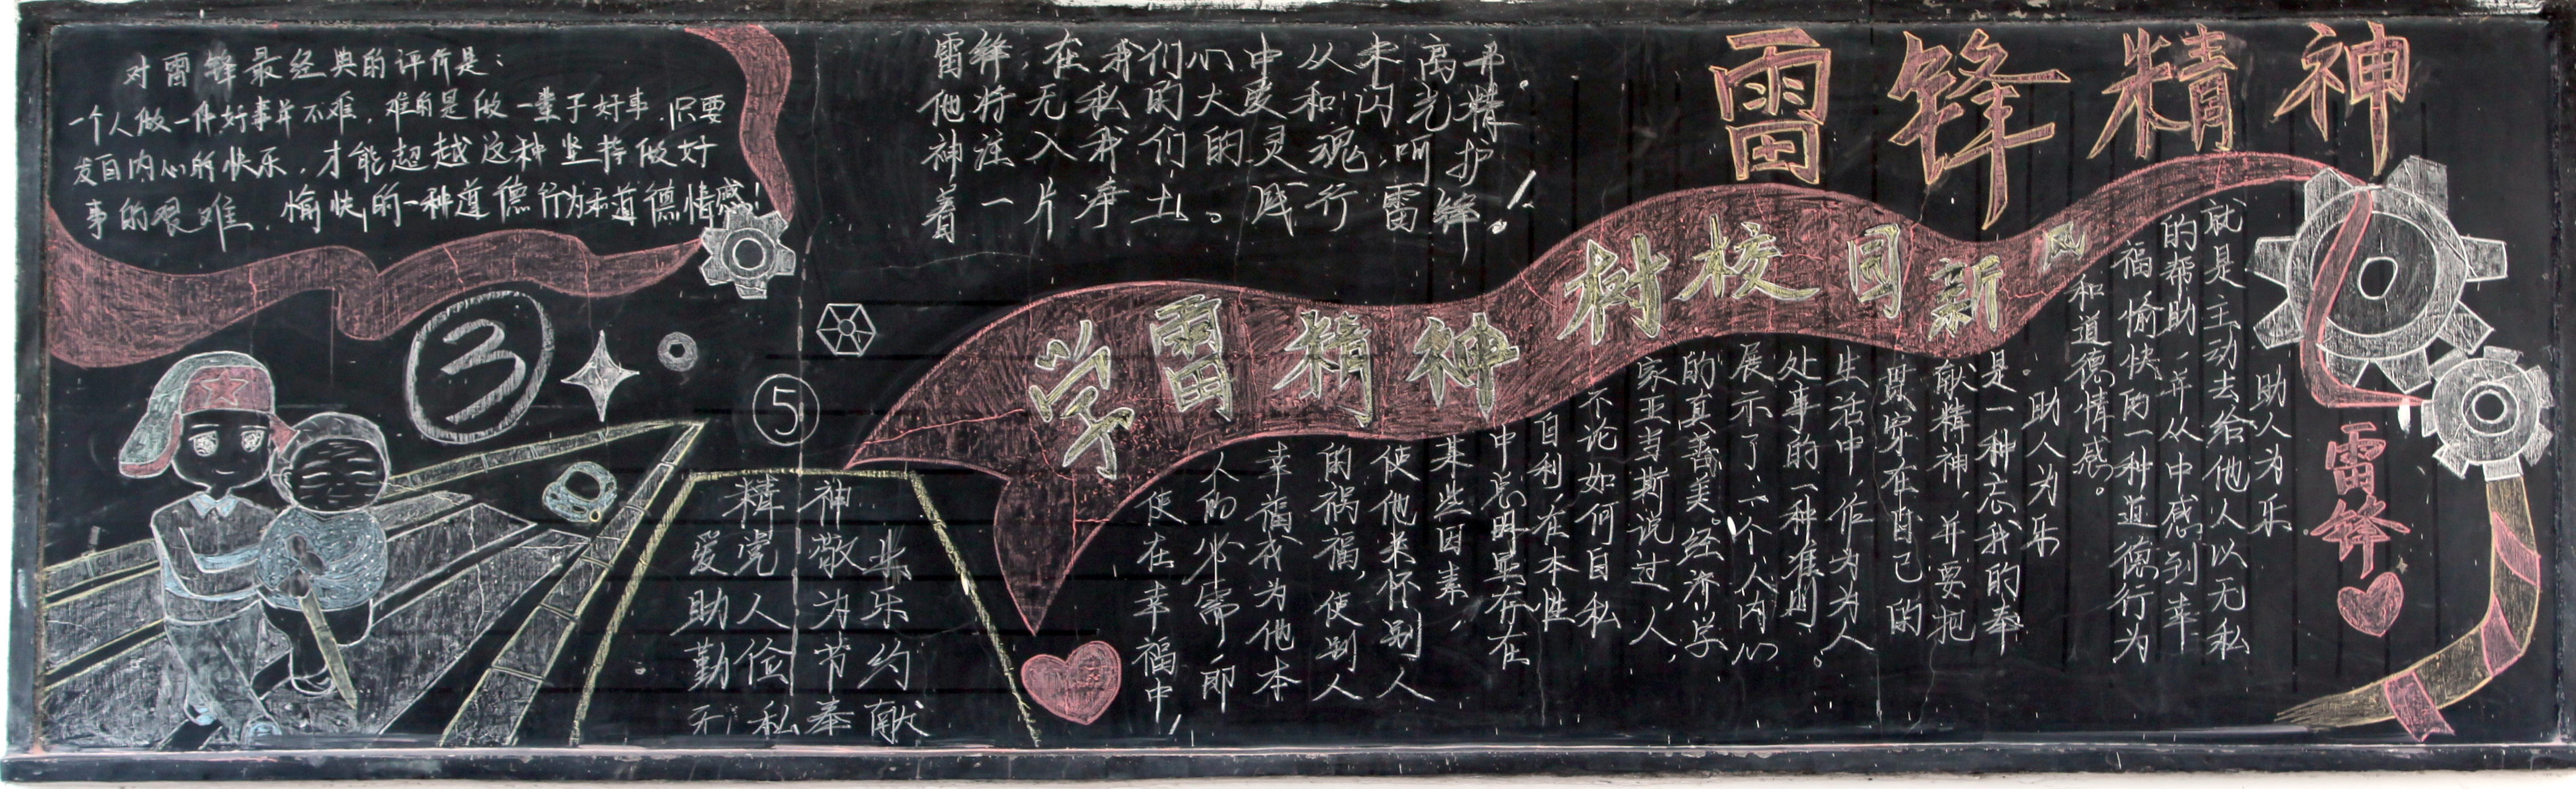 对雷锋最经典的评价是：
一个人做一件好事并不难，难的是做一辈子好事，只要
发自内心的快乐，才能超越这种坚持做好
事的艰难，愉快的一种道德行为和道德情感！
③
⑤
雷锋，在我们心中从未离开。
他将无私的大爱和闪光精
神注入我们的灵魂，叫护
着一片净土。践行雷锋！
雷锋精神
学雷精神 树校园新风
助人为乐
就是主动去给他人以无私
的帮助，并从中感到幸
福愉快的一种道德行为
和道德情感。
助人为乐
是一种忘我的奉
献精神，并要把
其穿在自己的
生活中，作为为人
处事的一种准则。
展示了一个人内心
的真善美。经济学
家亚当斯说过，人
不论如何自私
自利，在本性
中总明显存在
某些因素，
使他来怀别人
的祸福，使别人
幸福成为他本
人的必需，即
使在幸福中，
精神
爱党敬业
助人为乐
勤俭节约
无私奉献
雷锋